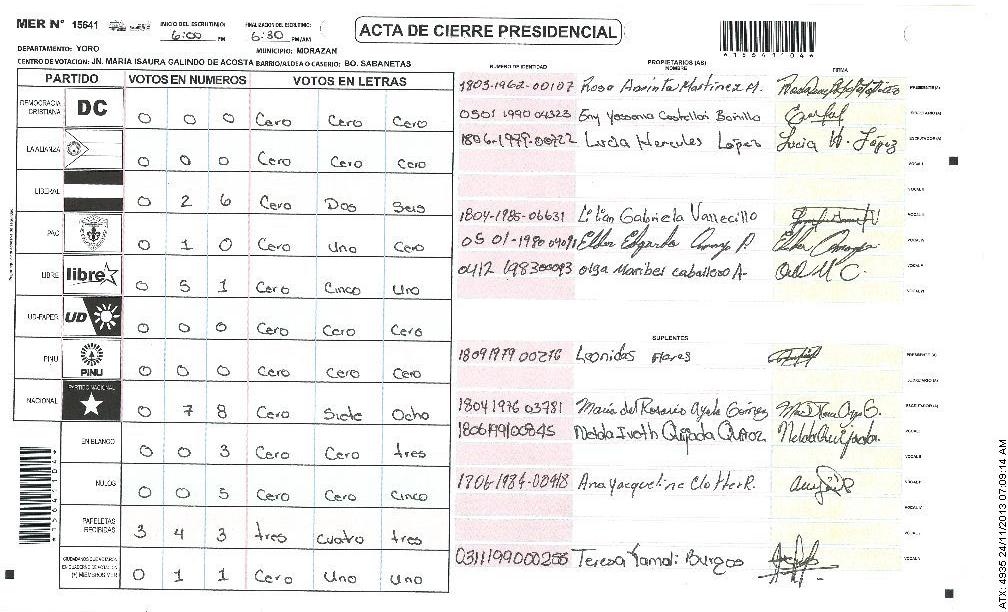 MER N° 15641 INICIO DEL ESCRUTINIO: 6:00 PM FINALIZACION DEL ESCRUTINIO: 6:30 PM/AM
ACTA DE CIERRE PRESIDENCIAL
DEPARTAMENTO: YORO MUNICIPIO: MORAZAN
CENTRO DE VOTACION: JN. MARIA ISAURA GALINDO DE ACOSTA BARRIO/ALDEA O CASERIO: BO. SABANETAS
PARTIDO VOTOS EN NUMEROS VOTOS EN LETRAS
DEMOCRACIA CRISTIANA DC 0 0 0 Cero Cero Cero
LA ALIANZA 0 0 0 Cero Cero Cero
LIBERAL 0 2 6 Cero Dos Seis
PAC 0 1 0 Cero Uno Cero
LIBRE libre 0 5 1 Cero Cinco Uno
UD-FAPER UD 0 0 0 Cero Cero Cero
PINU PINU 0 0 0 Cero Cero Cero
NACIONAL PARTIDO NACIONAL 0 7 8 Cero Siete Ocho
EN BLANCO 0 0 3 Cero Cero tres
NULOS 0 0 5 Cero Cero Cinco
PAPELETAS RECIBIDAS 3 4 3 tres cuatro tres
(+) MIEMBROS MER 0 1 1 Cero Uno Uno
NUMERO DE IDENTIDAD PROPIETARIOS (AS) NOMBRE FIRMA
1803-1962-00107 Rosa Martinez M. PRESIDENTE (A)
0501 1990 04323 Eny Yossana Castellon Bonilla SECRETARIO (A)
1806-1979-00722 Lucia Hercules López Lucia H. López ESCRUTADOR (A)
VOCAL I
VOCAL II
1804-1985-06631 Lilian Gabriela Vallecillo VOCAL III
0501-1980 04091 Elder Edgardo VOCAL IV
0412 198300093 olga Maribel caballero A. VOCAL V
VOCAL VI
SUPLENTES
18091979 00276 Leonidas Flores PRESIDENTE (A)
SECRETARIO (A)
18041976 03781 Maria del Rosario Ayala Gómez ESCRUTADOR (A)
Nelda Iveth Quijada VOCAL I
VOCAL II
1806-1984-00418 Ana Yacqueline Clotter R. VOCAL III
VOCAL IV
VOCAL V
Teresa Yamali Burgos VOCAL VI
*15641104*
ATX: 4935 24/11/2013 07:09:14 AM